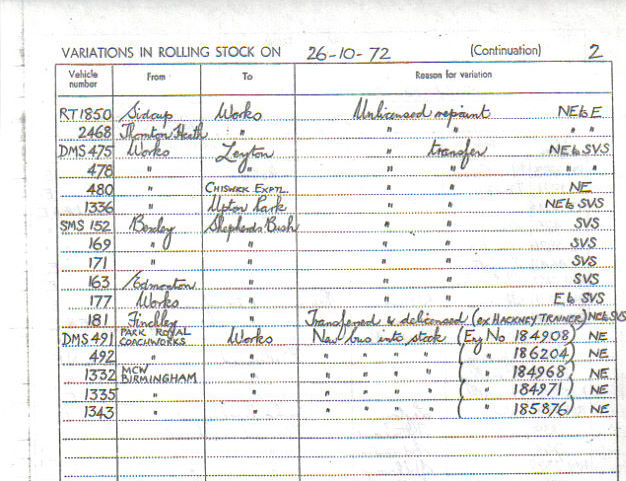 VARIATIONS IN ROLLING STOCK ON 26-10-72 (Continuation) 2
Vehicle number From To Reason for variation
RT1850 Sidcup Works Unlicensed repaint NE to E
2468 Thornton Heath " " " " "
DMS 475 Works Leyton " transfer NE to SVS
478 " " " " " "
480 " CHISWICK EXPTL. " " NE
1336 " Upton Park " " NE to SVS
SMS 152 Bexley Shepherds Bush " " SVS
169 " " " " SVS
171 " " " " SVS
163 Edmonton " " " SVS
177 Works " " " E to SVS
181 Finchley " Transferred & delicensed (ex HACKNEY TRAINER) NE to SVS
DMS 491 PARK ROYAL COACHWORKS Works New bus into stock (Eng No 184908) NE
492 " " " " " " ( " 186204) NE
1332 MCW BIRMINGHAM " " " " " ( " 184968) NE
1335 " " " " " " ( " 184971) NE
1343 " " " " " " ( " 185876) NE